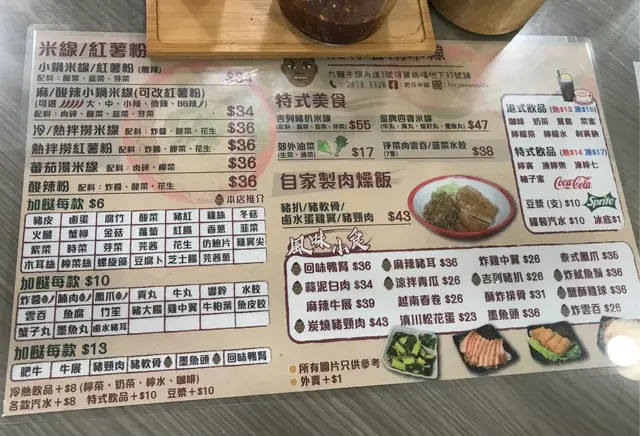 米線/紅薯粉
小鍋米線/紅薯粉 (無辣) $34
配料：酸菜、韭菜、芽菜
麻/酸辣小鍋米線(可改紅薯粉)
(可選 大、中、小辣、微辣、BB辣)
配料：肉碎、酸菜、韭菜、芽菜 $34
冷/熱拌撈米線 配料：炸醬、酸菜、花生 $36
冷/熱拌撈紅薯粉 配料：炸醬、酸菜、花生 $36
蕃茄湯米線 配料：肉碎、椰菜 $36
酸辣粉 配料：炸醬、酸菜、花生 $36
加餸每款 $6
本店推介
豬皮 鹵蛋 腐竹 酸菜 豬紅 雞絲 冬菇
火腿 蟹柳 金菇 蘿蔔 紅腸 香蔥 韭菜
紫菜 時菜 芽菜 芫茜 花生 仿鮑片 雞翼尖
木耳絲 榨菜絲 螺旋藻 豆腐卜 芝士腸 芫茜蔥
加餸每款 $10
炸醬 腩肉 鳳爪 貢丸 牛丸 響鈴 水餃
雲吞 魚腐 竹笙 豬大腸 雞中翼 牛柏葉 魚皮餃
蟹子丸 墨魚丸 鹵水豬耳
加餸每款 $13
肥牛 牛展 豬頸肉 豬軟骨 墨魚頭 回味鴨腎
冷熱飲品+$8 (檸茶、奶茶、檸水、咖啡)
各款汽水+$8 特式飲品+$10 豆漿+$10
2673 3328
特式美食
吉列豬扒米線 $55
配料：肉碎、酸菜、韭菜、芽菜
金牌四寶米線 $47
郊外油菜 $17
(生菜、通菜)
淨菜肉雲吞/韭菜水餃 $38
(7隻)
自家製肉燥飯
豬扒/豬軟骨/
鹵水蛋雞翼/豬頸肉 $43
風味小食
回味鴨腎 $36
麻辣豬耳 $36
炸雞中翼 $26
泰式鳳爪 $35
蒜泥白肉 $34
涼拌青瓜 $26
吉列豬扒 $26
炸魷魚鬚 $36
麻辣牛展 $39
越南春卷 $26
酥炸排骨 $31
鹽酥雞球 $36
炭燒豬頸肉 $43
涌川松花蛋 $23
墨魚頭 $36
炸雲吞 $26
所有圖片只供參考
外賣+$1
港式飲品 (熱$13 凍$16)
咖啡 奶茶 鴛鴦 菜蜜
檸檬茶 檸檬水 利賓納
特式飲品 (熱$14 凍$17)
檸賓 凍檸樂 凍檸七
柚子蜜
Coca Cola
豆漿 (支) $10
Sprite
罐裝汽水 $10 冰底$1